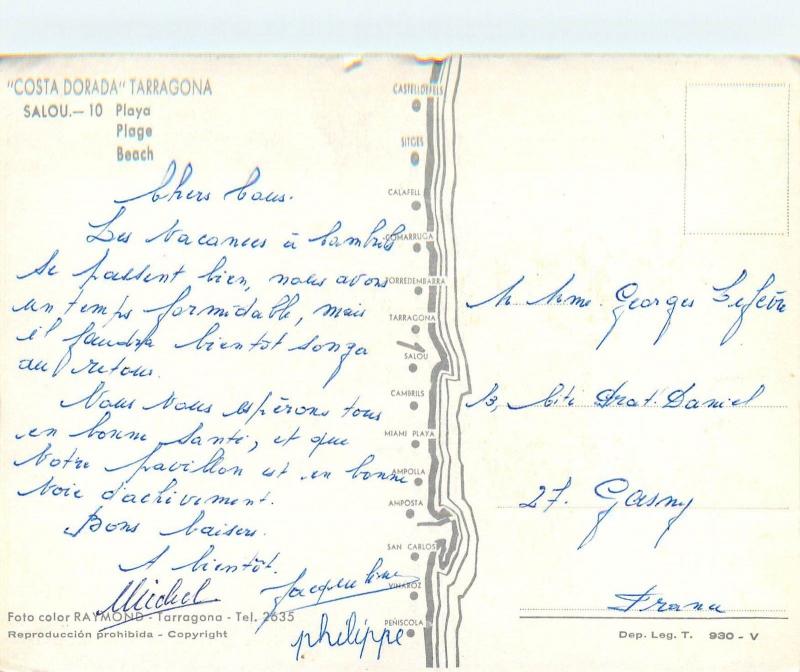 "COSTA DORADA" TARRAGONA
SALOU.— 10 Playa
Plage
Beach
Chers tous.
Les vacances à Cambrils
se passent bien, nous avons
un temps formidable, mais
il faudra bientôt songer
au retour.
Nous vous espérons tous
en bonne santé, et que
votre pavillon est en bonne
voie d'achivement.
Bons baisers.
A bientôt.
Michel Jacqueline
philippe
Foto color RAYMOND - Tarragona - Tel. 2635
Reproducción prohibida - Copyright
CASTELLDEFELS
SITGES
CALAFELL
COMARRUGA
TORREDEMBARRA
TARRAGONA
SALOU
CAMBRILS
MIAMI PLAYA
AMPOLLA
AMPOSTA
SAN CARLOS
VINAROZ
PEÑISCOLA
M Mme Georges Lefèvre
13, Cité Daniel
27. Gasny
France
Dep. Leg. T. 930 - V